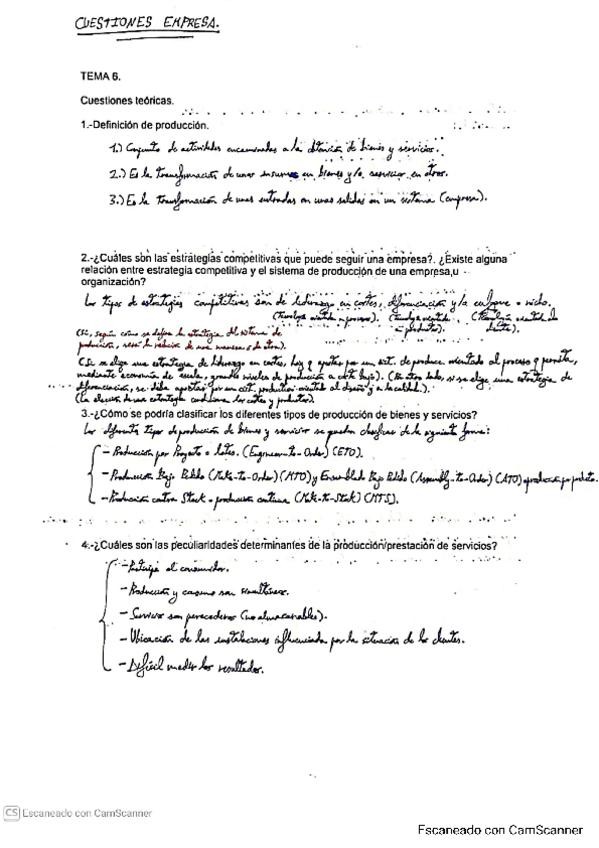 CUESTIONES EMPRESA.
TEMA 6.
Cuestiones teóricas.
1.-Definición de producción.
1.) Conjunto de actividades encaminadas a la obtención de bienes y servicios.
2.) Es la transformación de unos insumos en bienes y/o servicios en otros.
3.) Es la transformación de unas entradas en unas salidas en un sistema (empresa).
2.-¿Cuáles son las estrategias competitivas que puede seguir una empresa?. ¿Existe alguna
relación entre estrategia competitiva y el sistema de producción de una empresa,u
organización?
Los tipos de estrategias competitivas son de liderazgo en costes, diferenciación y/o enfoque o nicho.
(Tecnología orientada a proceso). (Tecnología orientada a producto). (Tecnología orientada al cliente).
(Si, según como se defina la estrategia del sistema de
producción, será la relación de una manera o de otra).
(Si se elige una estrategia de liderazgo en costes, hay q apostar por un sist. de produce. orientado al proceso q permita,
mediante economía de escala, grandes niveles de producción a coste bajo). (Por otro lado, si se elige una estrategia de
diferenciación, se debe apostar por un sist. productivo orientado al diseño y a la calidad).
(La elección de una estrategia condiciona los costes y productos).
3.-¿Cómo se podría clasificar los diferentes tipos de producción de bienes y servicios?
Los diferentes tipos de producción de bienes y servicios se pueden clasificar de la siguiente forma:
- Producción por Proyecto o lotes. (Engineer-to-Order) (ETO).
- Producción Bajo Pedido (Make-to-Order) (MTO) y Ensamblado Bajo Pedido (Assembly-to-Order) (ATO) o producción por producto.
- Producción contra Stock o producción continua (Make-to-Stock) (MTS).
4.-¿Cuáles son las peculiaridades determinantes de la producción/prestación de servicios?
- Participa el consumidor.
- Producción y consumo son simultáneos.
- Servicios son perecederos (no almacenables).
- Ubicación de las instalaciones influenciada por la situación de los clientes.
- Difícil medir los resultados.
CS Escaneado con CamScanner
Escaneado con CamScanner